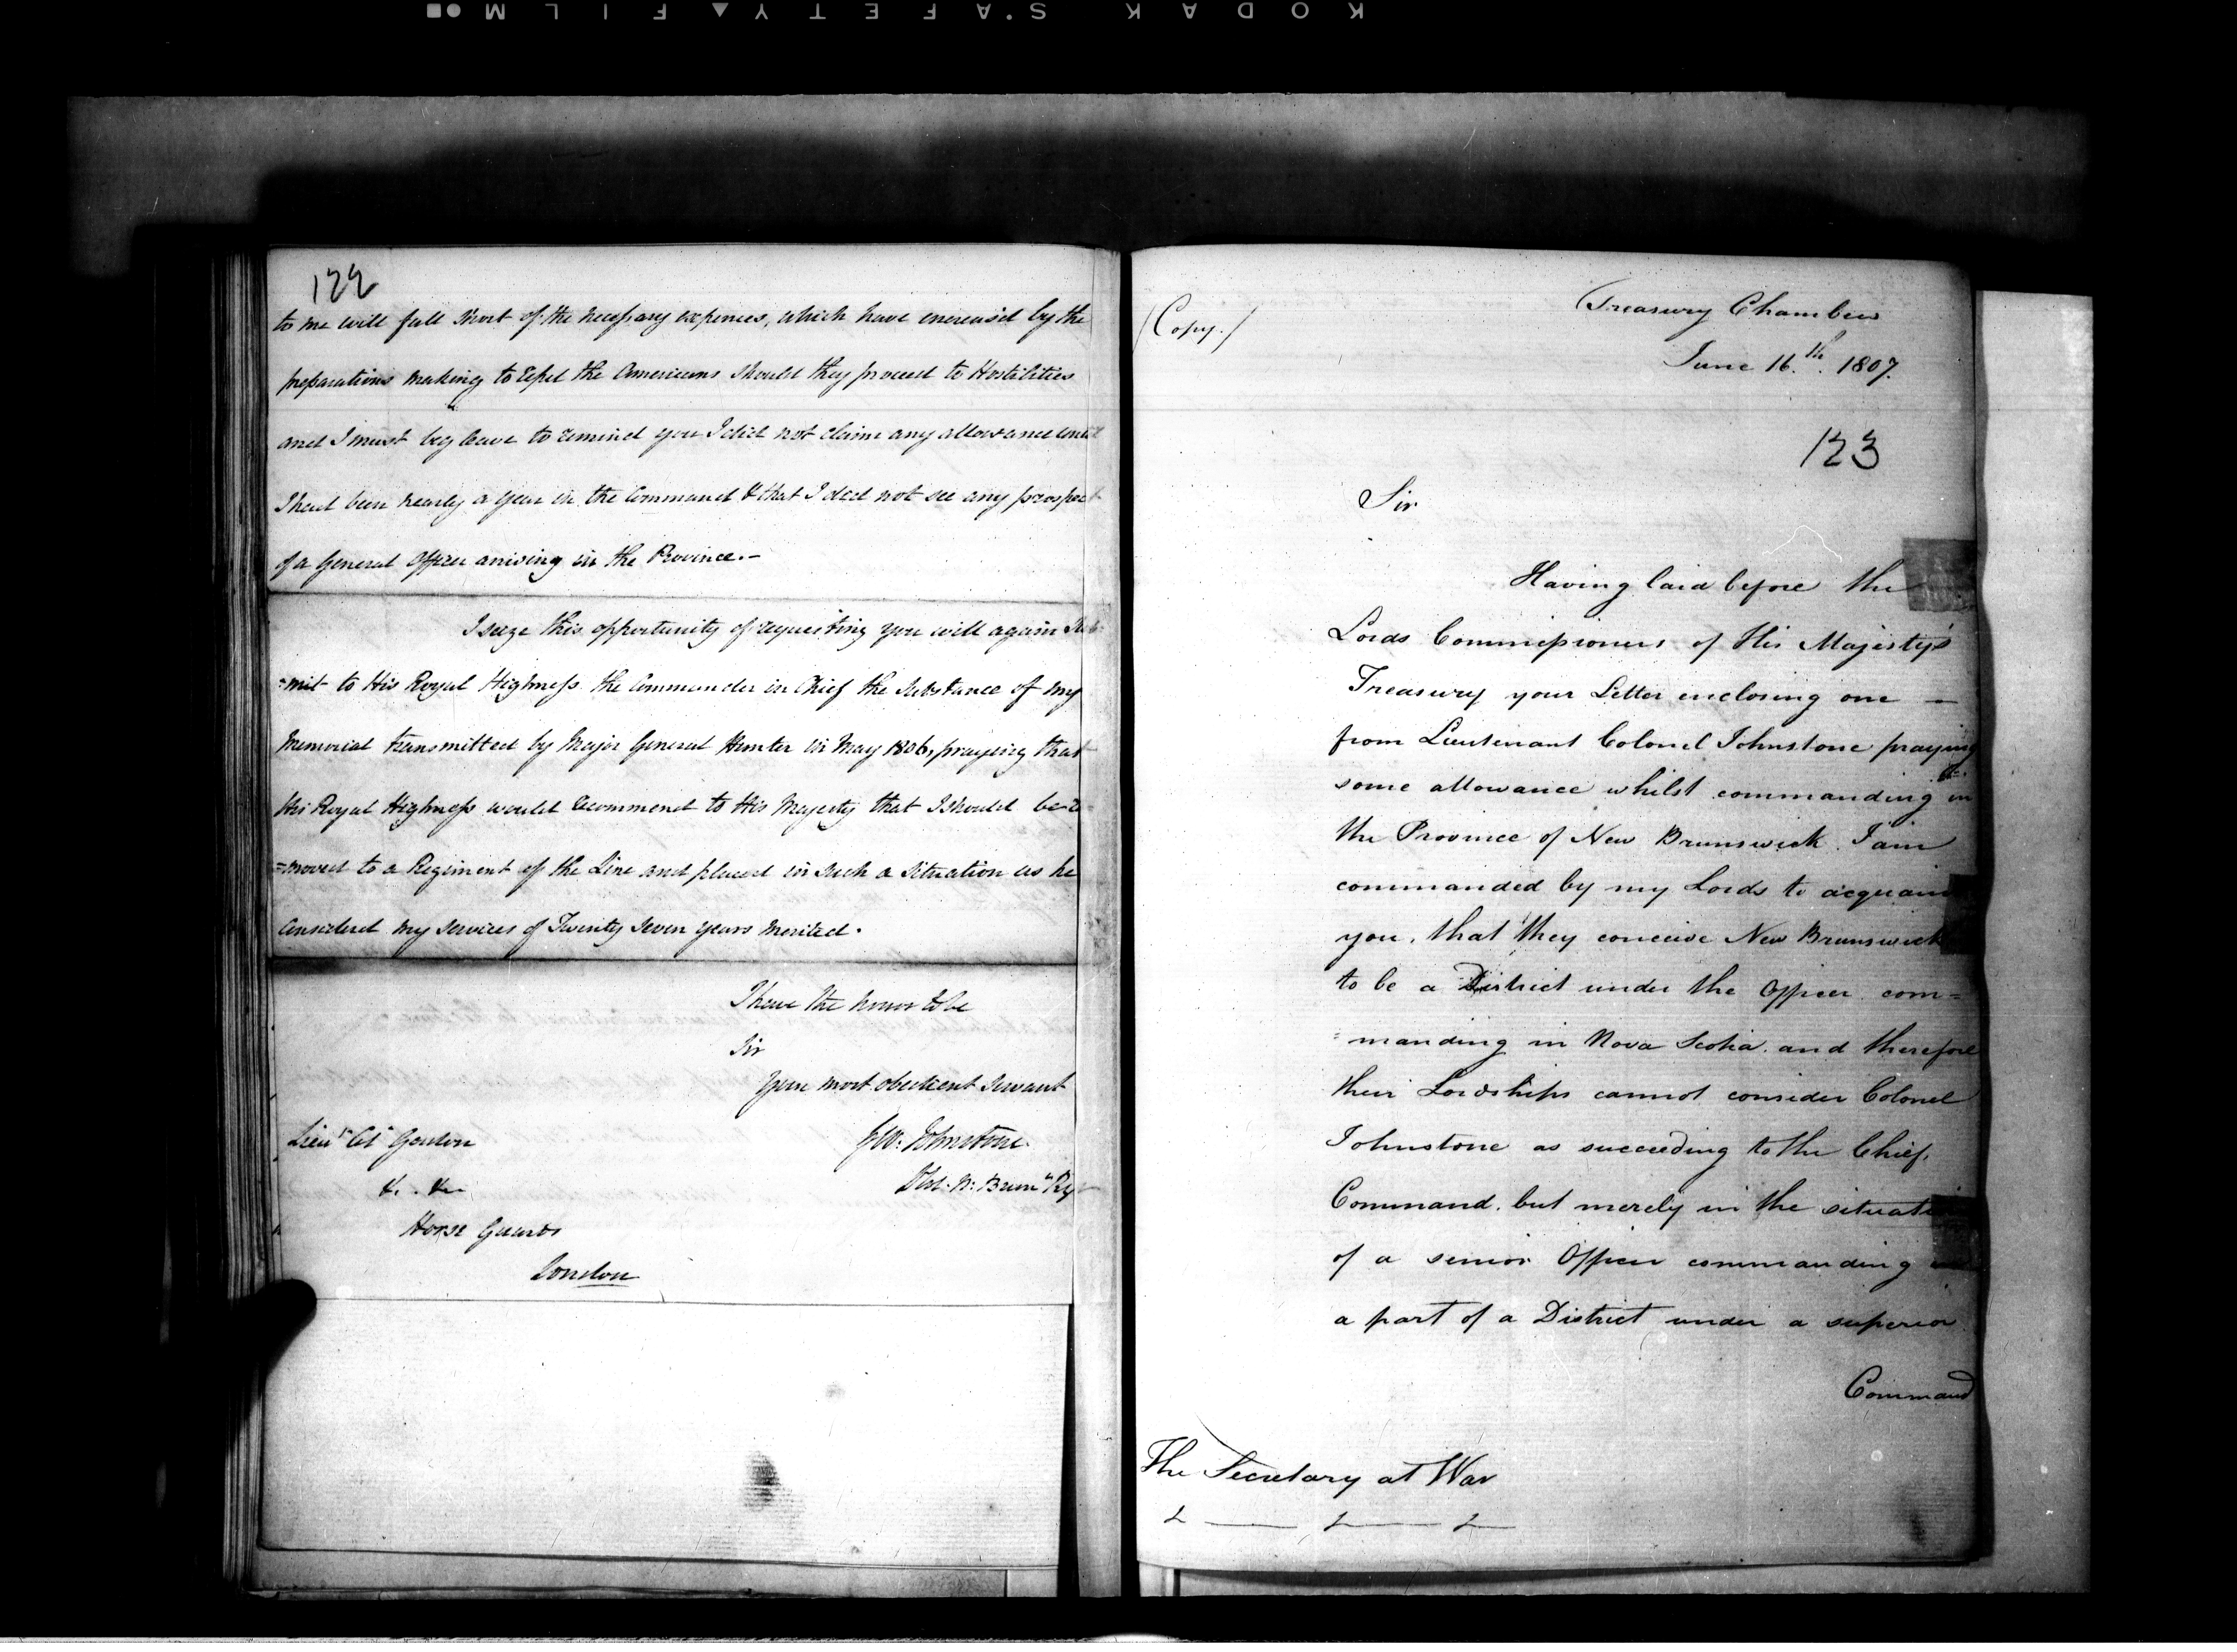 KODAK S'AFETY FILM
122
to me will fall short of the necessary expences, which have encreas'd by the
preparations making to repel the Americans should they proceed to Hostilities
and I must beg leave to remind you I did not claim any allowance until
I had been nearly a year in the Command & that I did not see any prospect
of a General Officer arriving in the Province.-
I seize this opportunity of requesting you will again Sub-
=mit to His Royal Highness the Commander in Chief the Substance of my
Memorial transmitted by Major General Hunter in May 1806, praying that
His Royal Highness would recommend to His Majesty that I should be re-
=moved to a Regiment of the Line and placed in such a Situation as he
considered my services of Twenty seven years merited.
I have the honor to be
Sir
Your most obedient Servant
Lieut. Col. Gordon
J.W. Johnstone
&c. &c.
N: Brunk. Reg
Horse Guards
London
(Copy.)
Treasury Chambers
June 16.th 1807.
123
Sir
Having laid before the
Lords Commissioners of His Majesty's
Treasury your Letter enclosing one -
from Lieutenant Colonel Johnstone praying
some allowance whilst commanding in
the Province of New Brunswick. I am
commanded by my Lords to acquain
you, that they conceive New Brunswick
to be a District under the Officer com=
=manding in Nova Scotia. and therefore
their Lordships cannot consider Colonel
Johnstone as succeeding to the Chief.
Command. but merely in the situati
of a senior Officer commanding
a part of a District under a superior
Command
The Secretary at War